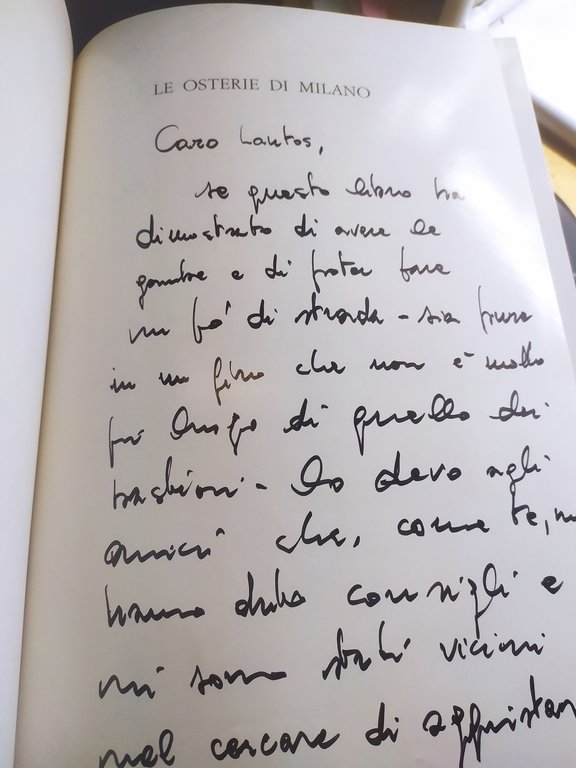 LE OSTERIE DI MILANO
Caro Lantos,
se questo libro ha
dimostrato di avere le
gambe e di poter fare
un po' di strada - sia pure
in un giro che non è molto
più lungo di quello dei
bastioni - lo devo agli
amici che, come te, mi
hanno dato consigli e
mi sono stati vicini
nel cercare di